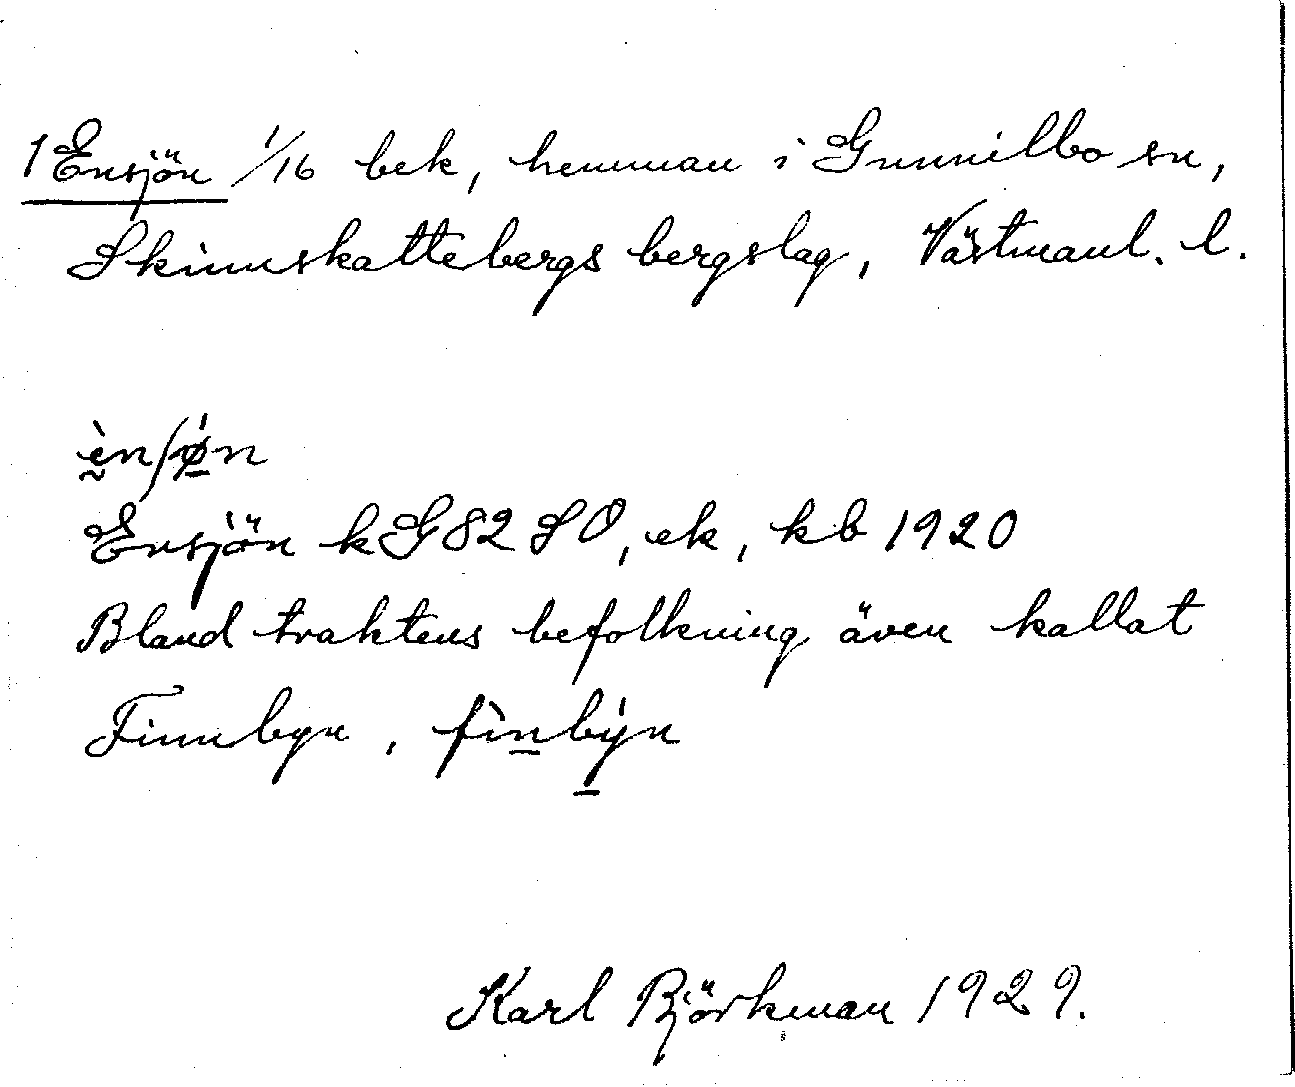 1 Ensjön 1/16 bek, hemman i Gunnilbo sn,
Skinnskattebergs bergslag, Västmanl. l.
ènʃǿn
Ensjön k G82 SO, ek, kb 1920
Bland traktens befolkning även kallat
Finnbyn, fìnbýn
Karl Björkman 1929.